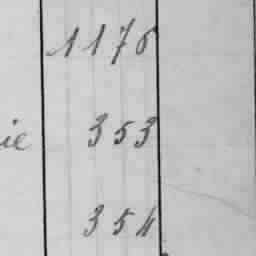 1176
ie 353
354